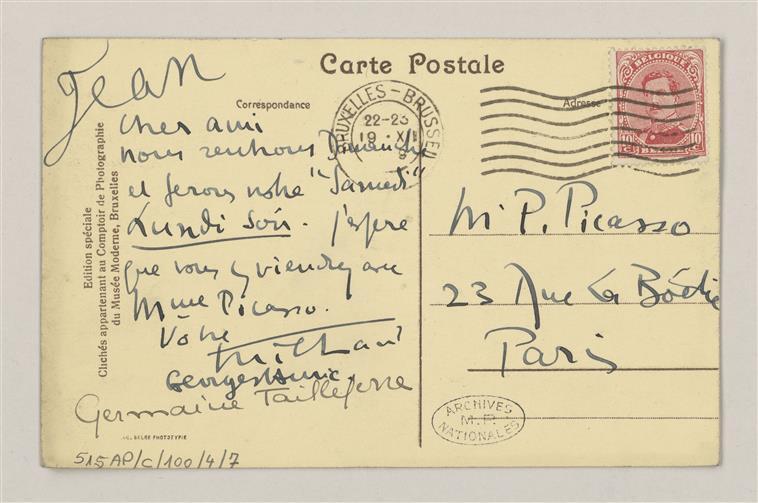 Jean
Carte Postale
Correspondance
Adresse
BELGIQUE
10 10
BELGIË
BRUXELLES - BRUSSEL
22-23
19 XI
Cher ami
nous rentrons Dimanche
et ferons notre "Samedi"
Lundi Soir. j'espere
que vous y viendrez avec
Mme Picasso.
Votre
Milhaud
Georges Auric
Germaine Tailleferre
M. P. Picasso
23 Rue La Boétie
Paris
Edition spéciale
Clichés appartenant au Comptoir de Photographie
du Musée Moderne, Bruxelles
ARCHIVES
M.P.
NATIONALES
BELGE PHOTOTYPIE
515AP/C/100/4/7